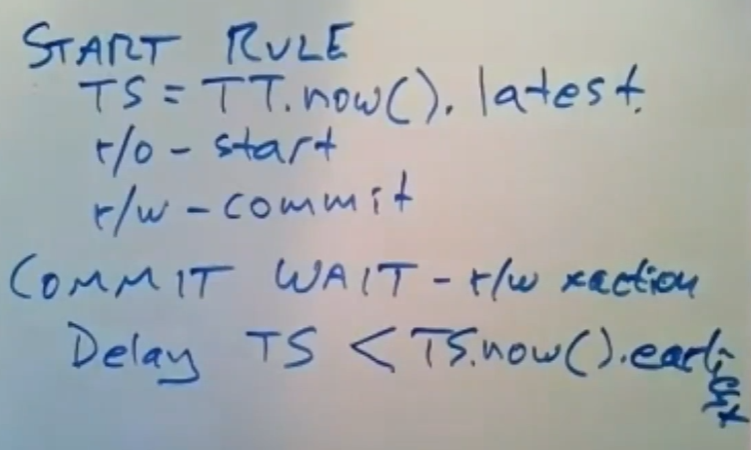 START RULE
TS = TT.now().latest.
r/o - start
r/w - commit
COMMIT WAIT - r/w xaction
Delay TS < TS.now().earliest